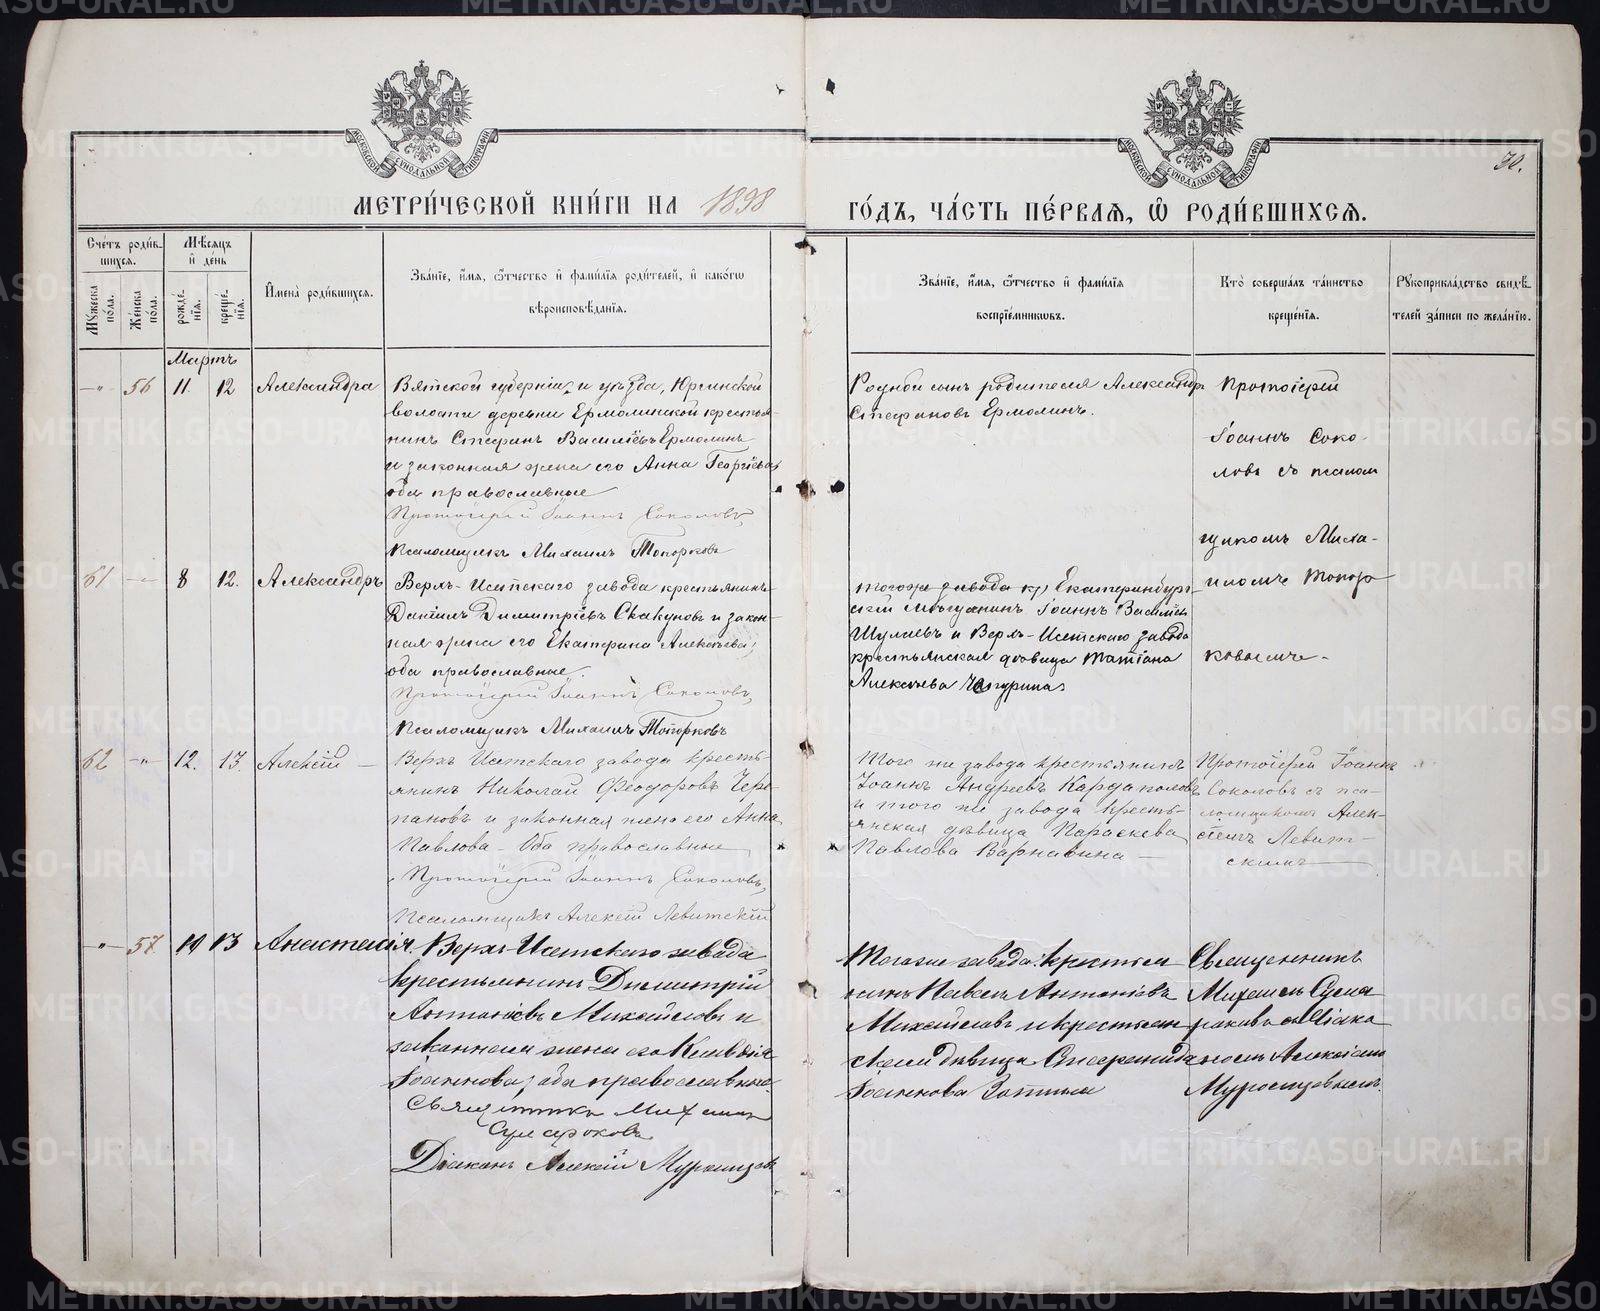 METRIKI.GASO-URAL.RU
МОСКОВСКОЙ СУНОДАЛЬНОЙ ТИПОГРАФІИ
МОСКОВСКОЙ СУНОДАЛЬНОЙ ТИПОГРАФІИ
30.
МЕТРИ́ЧЕСКОЙ КНИ́ГИ НА 1898 ГО́ДЪ, ЧА́СТЬ ПЕ́РВАѦ, Ѡ҆ РОДИ́ВШИХСѦ.
Сче́тъ роди́в-
шихсѧ.
Мꙋ́жеска по́ла.
Же́нска по́ла.
Мѣ́сѧцъ
и҆ де́нь
рожде́-
нїѧ.
креще́-
нїѧ.
И҆мена̀ роди́вшихсѧ.
Зва́нїе, и҆́мѧ, ѻ҆́тчество и҆ фами́лїѧ роди́телей, и҆ како́гѡ
вѣроисповѣ́данїѧ.
Зва́нїе, и҆́мѧ, ѻ҆́тчество и҆ фами́лїѧ
воспрїе́мникѡвъ.
Кто̀ соверша́лъ та́инство
креще́нїѧ.
Рꙋкоприкла́дство свидѣ́-
телей за́писи по жела́нїю.
Мартъ
-"- 56 11 12 Александра
Вятской губерніи и уѣзда, Юринской
волости деревни Ермолинской крестья-
нинъ Стефанъ Василіевъ Ермолинъ
и законная жена его Анна Георгіева,
оба православные
Протоіерей Іоаннъ Соколовъ,
Псаломщикъ Михаилъ Топорковъ
Родной сынъ родителя Александръ
Стефановъ Ермолинъ.
Протоіерей
Іоаннъ Соко-
ловъ съ псалом
щикомъ Миха-
иломъ Топор
ковымъ-
61 -"- 8 12. Александръ
Верхъ-Исетскаго завода крестьянинъ
Даніилъ Димитріевъ Скакуновъ и закон-
ная жена его Екатерина Алексѣева,
оба православные.
Протоіерей Іоаннъ Соколовъ,
Псаломщикъ Михаилъ Топорковъ
того же завода кр. Екатеринбург-
скій мѣщанинъ Іоаннъ Василіевъ
Шулаевъ и Верхъ-Исетскаго завода
крестьянская дѣвица Татіана
Алексѣева Чепурина
62 -"- 12. 13. Алексій -
Верхъ Исетскаго завода кресть-
янинъ Николай Феодоровъ Чере-
пановъ и законная жена его Анна
Павлова - Оба православные
Протоіерей Іоаннъ Соколовъ,
Псаломщикъ Алексій Левитскій
Того же завода крестьянинъ
Іоаннъ Андреевъ Кардаполовъ
и того же завода кресть-
янская дѣвица Параскева
Павлова Варнавина -
Протоіерей Іоаннъ
Соколовъ съ пса-
ломщикомъ Алек-
сіемъ Левит-
скимъ
-"- 57 10 13 Анастасія
Верхъ-Исетскаго завода
крестьянинъ Димитрій
Антоніевъ Михайловъ и
законная жена его Клавдія
Іоаннова, оба православные
Священникъ Михаилъ
Сумароковъ
Діаконъ Алексій Мурашцевъ
Тогоже завода крестья
нинъ Павелъ Антоніевъ
Михайловъ и крестьян
ская дѣвица Стефанида
Іоаннова
Священникъ
Михаилъ Сума
роковъ съ діако
номъ Алексіемъ